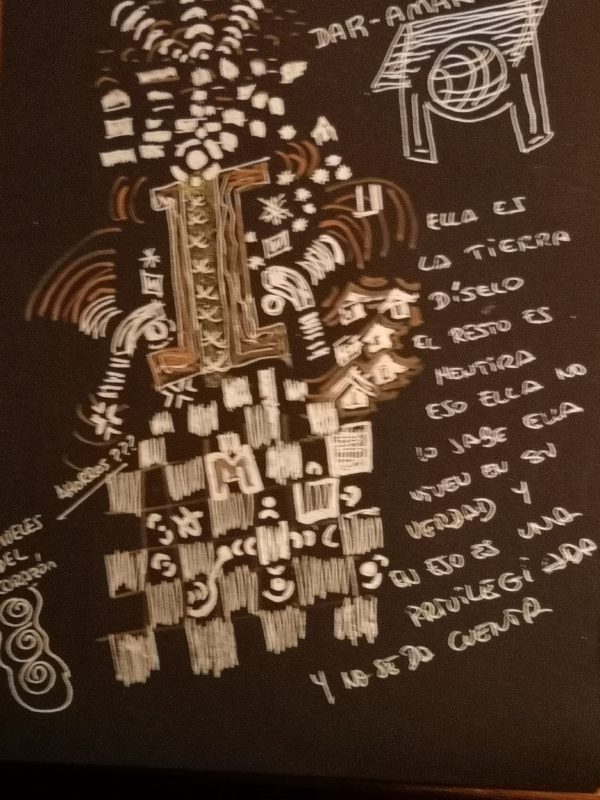 DAR-AMAR
ELLA ES
LA TIERRA
DÍSELO
EL RESTO ES
MENTIRA
ESO ELLA NO
LO SABE ELLA
VIVEN EN SU
VERDAD Y
EN ESO ES UNA
PRIVILEGIADA
Y NO SE DA CUENTA
AHORROS???
DEL
CORAZÓN
M